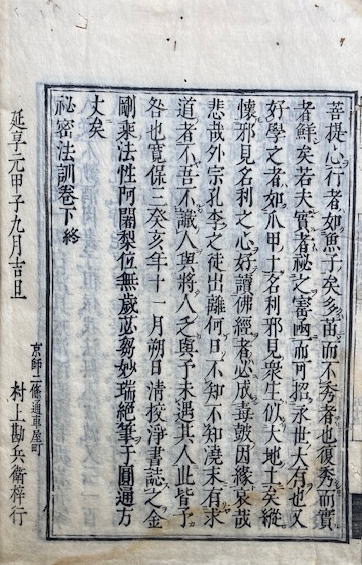 菩提心行者如魚子矣多苗而不秀者也復秀而實
者鮮矣若夫實者祕之審函而可招永世大有也又
好學之者如爪甲土名利邪見衆生似大地土矣縱
懷邪見名利之心好讀佛經者必成毒鼓因緣哀哉
悲哉外宗孔李之徒出離何日不知不知澆末有求
道者不吾不識人與將人之與予未遇其人此皆予
咎也寬保三癸亥年十一月朔日清挍淨書誌之金
剛乘法性阿闍梨位無歲苾芻妙瑞絕筆于圓通方
丈矣
祕密法訓卷下終
延享元甲子九月吉旦
京師二條通車屋町
村上勘兵衛梓行